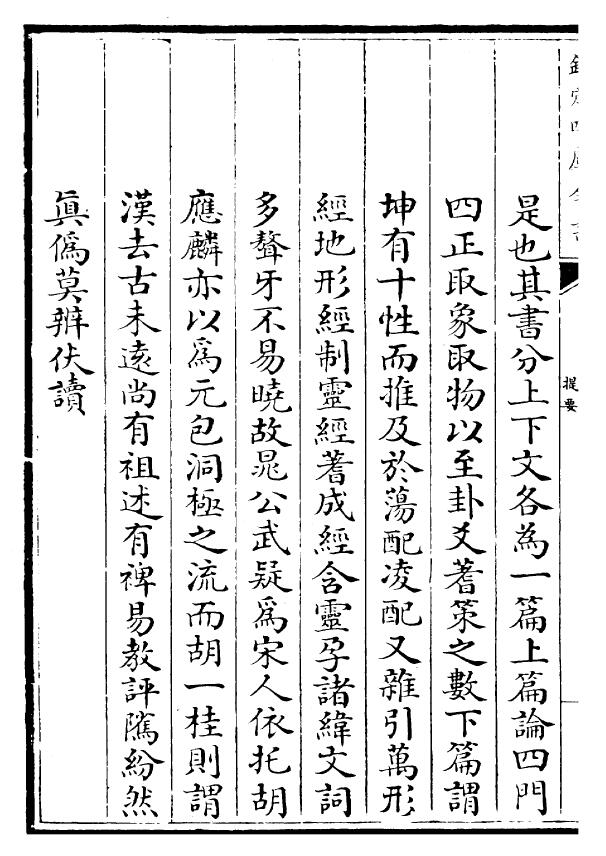 欽定四庫全書
提要
是也其書分上下文各為一篇上篇論四門
四正取象取物以至卦爻蓍策之數下篇謂
坤有十性而推及於蕩配凌配又雜引萬形
經地形經制靈經蓍成經含靈孕諸緯文詞
多聱牙不易曉故晁公武疑爲宋人依托胡
應麟亦以爲元包洞極之流而胡一桂則謂
漢去古未遠尚有祖述有裨易教評隲紛然
眞僞莫辨伏讀